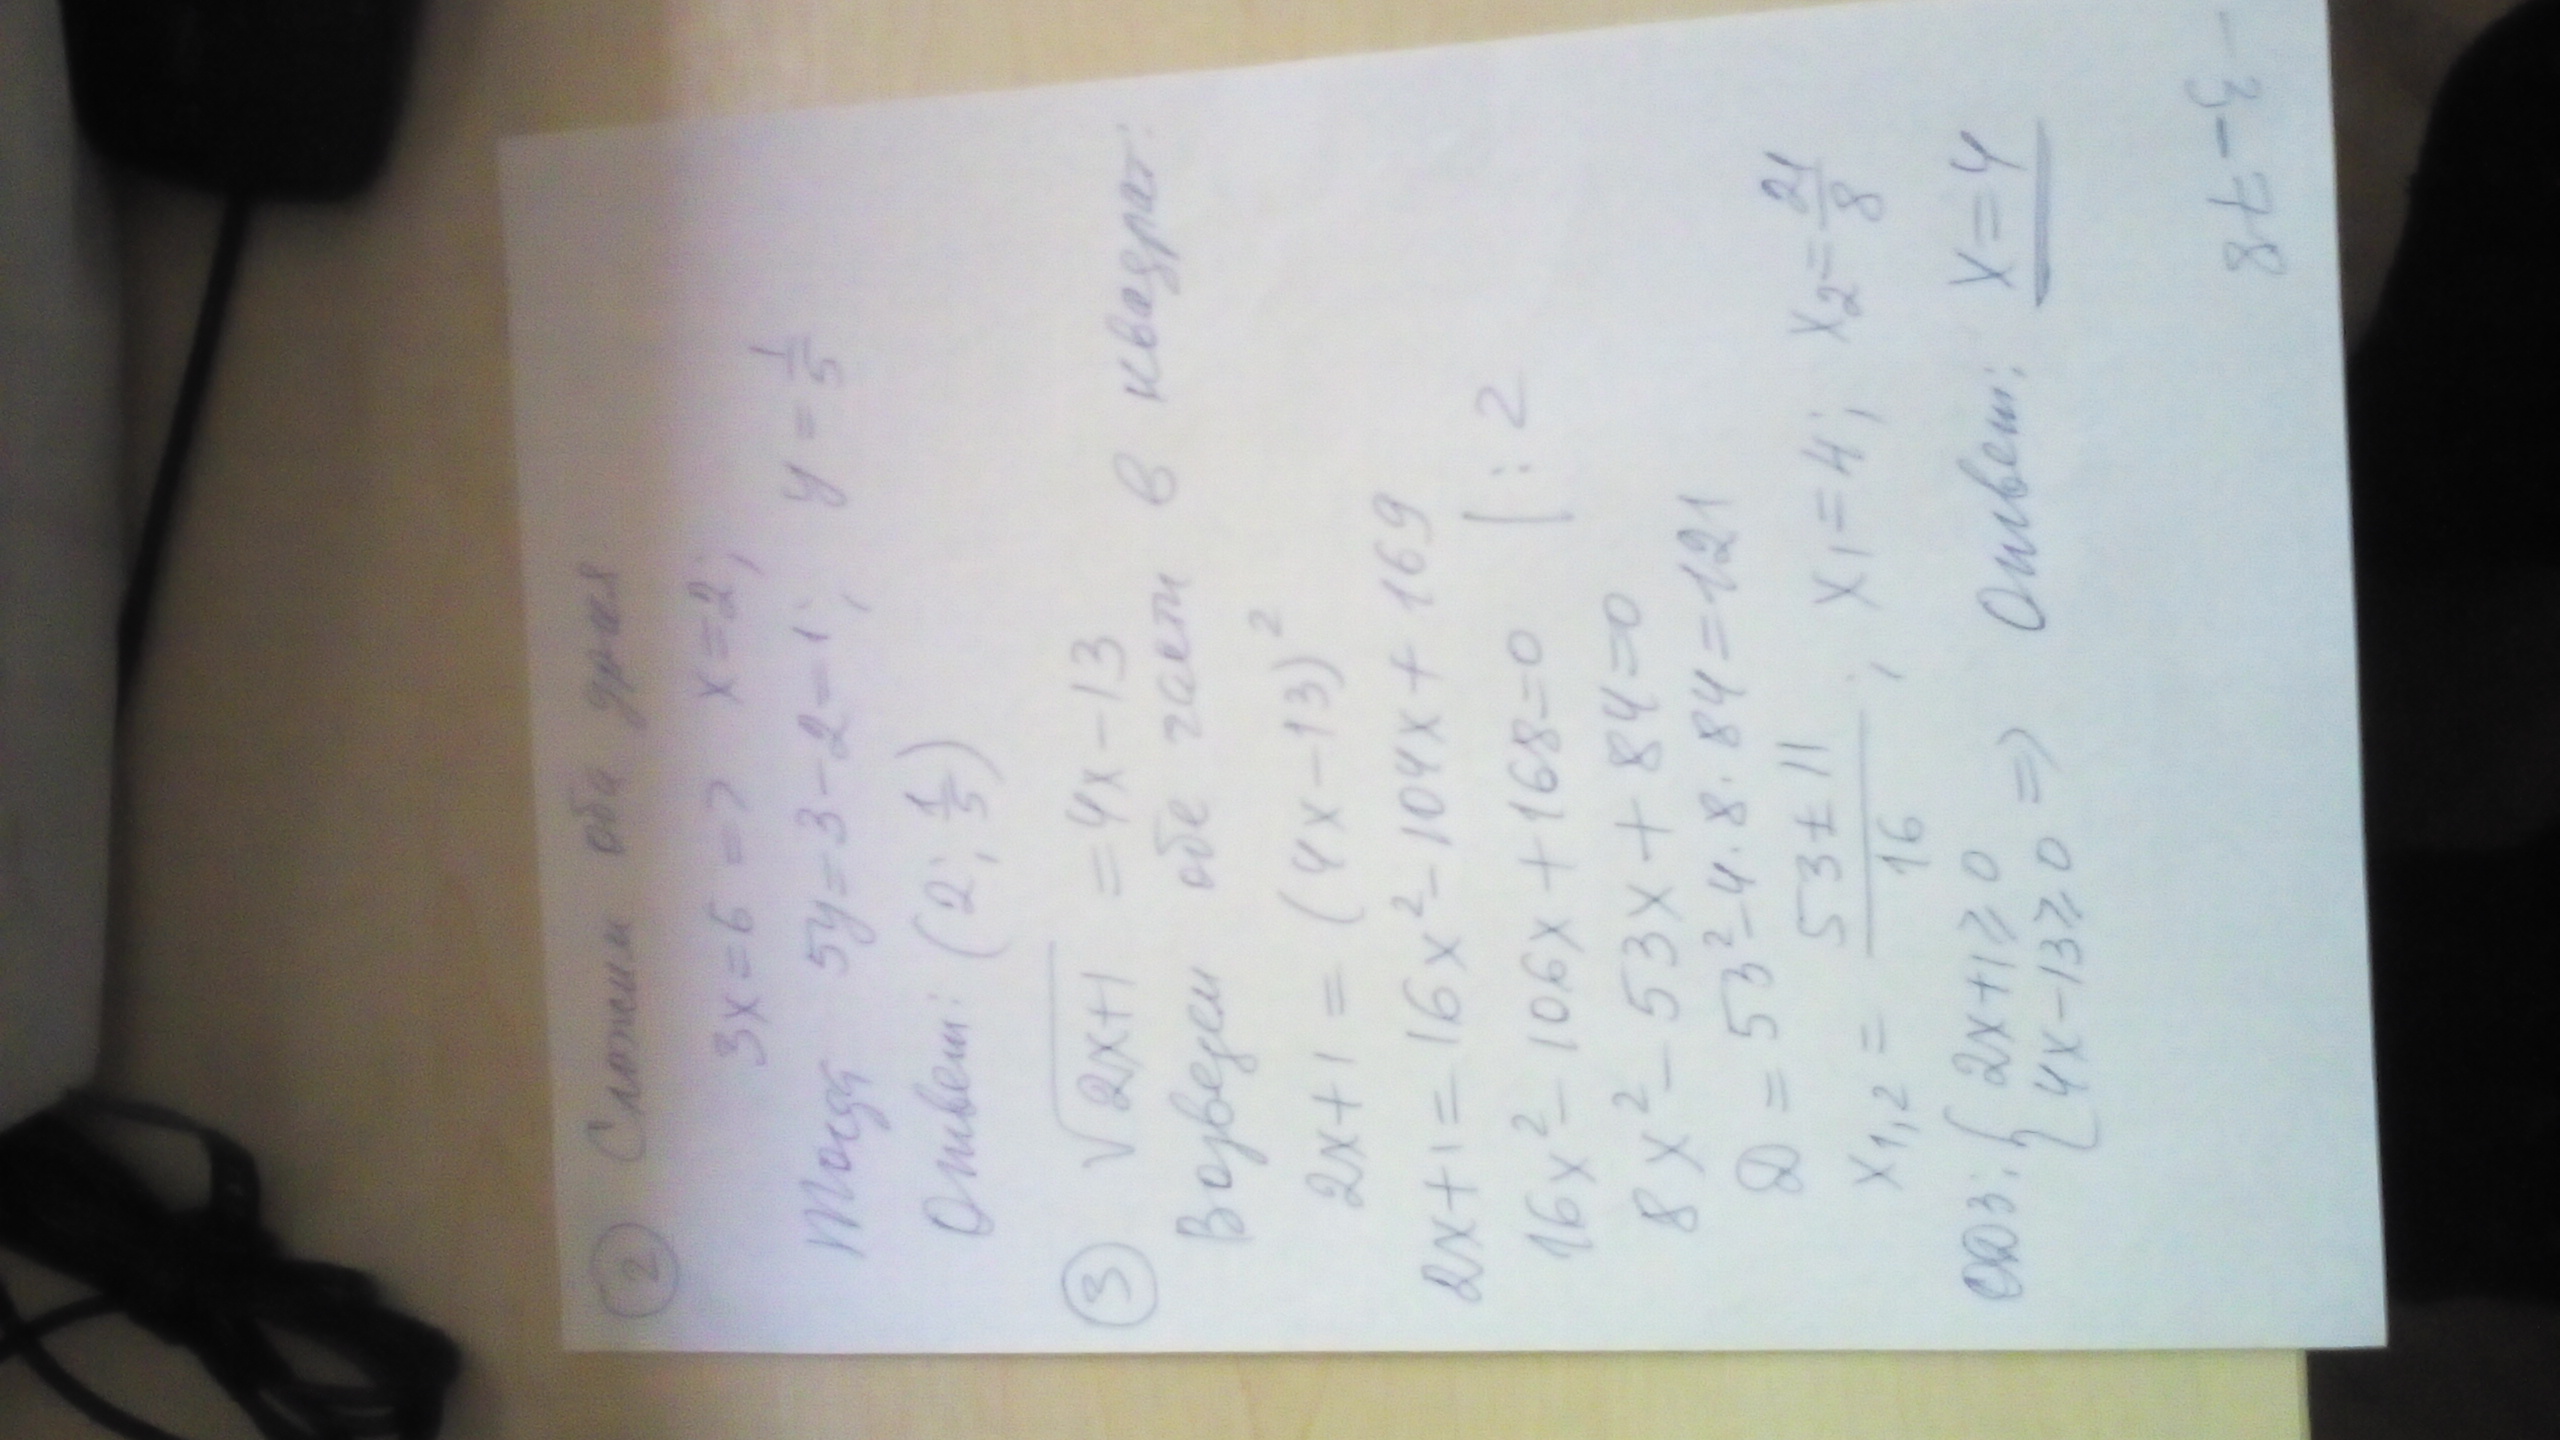 ② Сложим оба ур-ия
3x=6 => x=2;
Тогда 5y=3-2=1; y=1/5
Ответ: (2; 1/5)
③ √(2x+1) = 4x-13
Возведем обе части в квадрат:
2x+1 = (4x-13)²
2x+1=16x²-104x+169
16x²-106x+168=0 |:2
8x²-53x+84=0
D=53²-4·8·84=121
x₁,₂ = (53±11)/16; x₁=4; x₂=21/8
ОДЗ: { 2x+1⩾0
4x-13⩾0 => Ответ: x=4